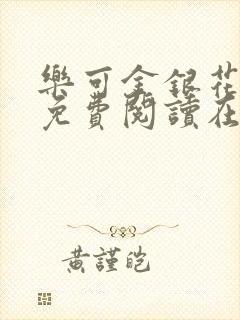 樂可金銀花
免費閱讀在
黃謹皑